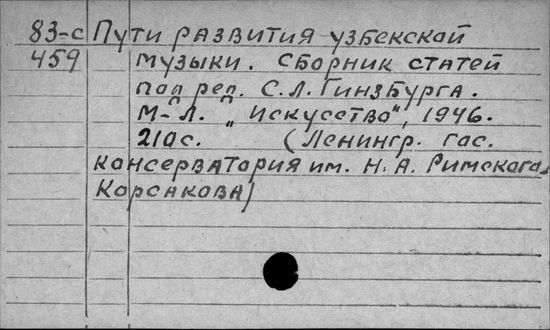 83-с Пути развития узбекской
459 музыки. Сборник статей
под ред. С.Л. Гинзбурга.
М-Л. „Искусство", 1946.
210с. (Ленингр. гос.
консерватория им. Н. А. Римского-
Корсакова)